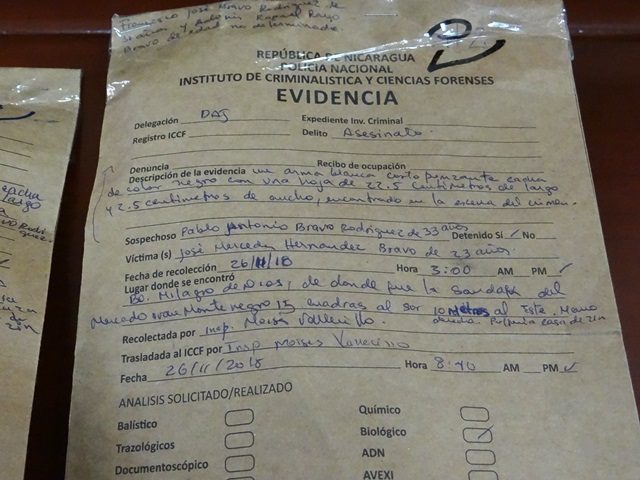 Francisco José Bravo Rodriguez de
años y Antonio Rafael
Bravo de edad no determinada
REPÚBLICA DE NICARAGUA
POLICIA NACIONAL
INSTITUTO DE CRIMINALISTICA Y CIENCIAS FORENSES
EVIDENCIA
Delegación DAJ Expediente Inv. Criminal
Registro ICCF Delito Asesinato
Denuncia Recibo de ocupación
Descripción de la evidencia un arma blanca corto punzante cacha
de color negro con una hoja de 22.5 centimetros de largo
y 2.5 centimetros de ancho, encontrado en la escena del crimen
Sospechoso Pablo Antonio Bravo Rodriguez de 33 años Detenido Sí ✓ No
Víctima (s) José Mercedes Hernandez Bravo de 23 años
Fecha de recolección 26/11/18 Hora 3:00 AM PM ✓
Lugar donde se encontró
Bo. Milagro de Dios, de donde fue la Sandak del
Mercado Ivan Montenegro 15 cuadras al sur 10 Metros al Este. Mano
derecha. casa de zin
Recolectada por Insp. Moises Vallecillo.
Trasladada al ICCF por Insp Moises Vallecillo
Fecha 26/11/2018 Hora 8:40 AM PM ✓
ANALISIS SOLICITADO/REALIZADO
Balístico
Químico
Trazológicos
Biológico ✓
Documentoscópico
ADN
AVEXI